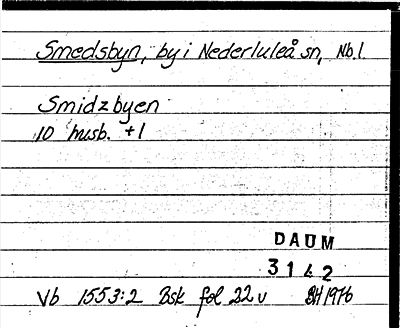 Smedsbyn, by i Nederluleå sn, Nb.l.
Smidzbyen
10 husb. +1
DAUM
3142
Vb 1553:2 Bsk fol 22v BH 1976